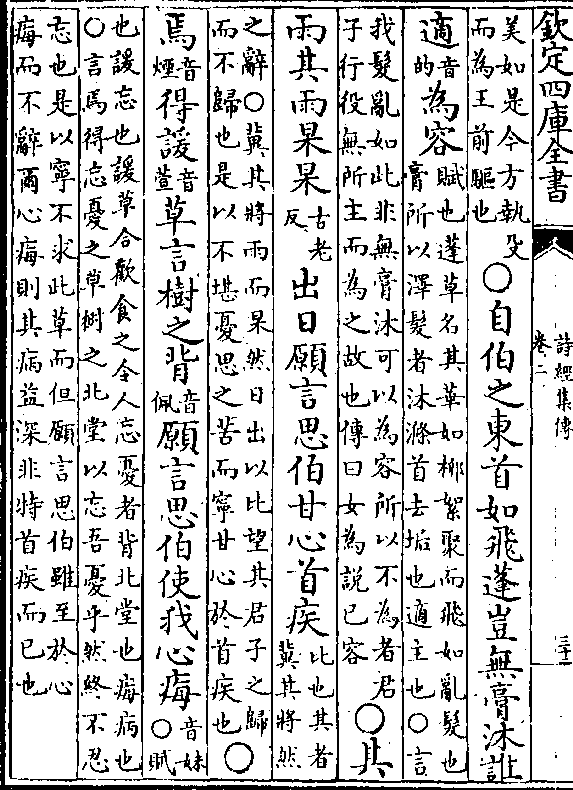 欽定四庫全書
詩經集傳
卷二
三十一
美如是今方執殳
而為王前驅也
○自伯之東首如飛蓬豈無膏沐誰
適
音
的
為容
賦也蓬草名其華如柳絮聚而飛如亂髮也
膏所以澤髮者沐滌首去垢也適主也○言
我髮亂如此非無膏沐可以為容所以不為者君
子行役無所主而為之故也傳曰女為說己容
○其
雨其雨杲杲
古老
反
出日願言思伯甘心首疾
比也其者
冀其將然
之辭○冀其將雨而杲然日出以比望其君子之歸
而不歸也是以不堪憂思之苦而寧甘心於首疾也
○
焉
音
煙
得諼
音
萱
草言樹之背
音
佩
願言思伯使我心痗
音妹
○賦
也諼忘也諼草合歡食之令人忘憂者背北堂也痗病也
○言焉得忘憂之草樹之北堂以忘吾憂乎然終不忍
忘也是以寧不求此草而但願言思伯雖至於心
痗而不辭爾心痗則其病益深非特首疾而已也